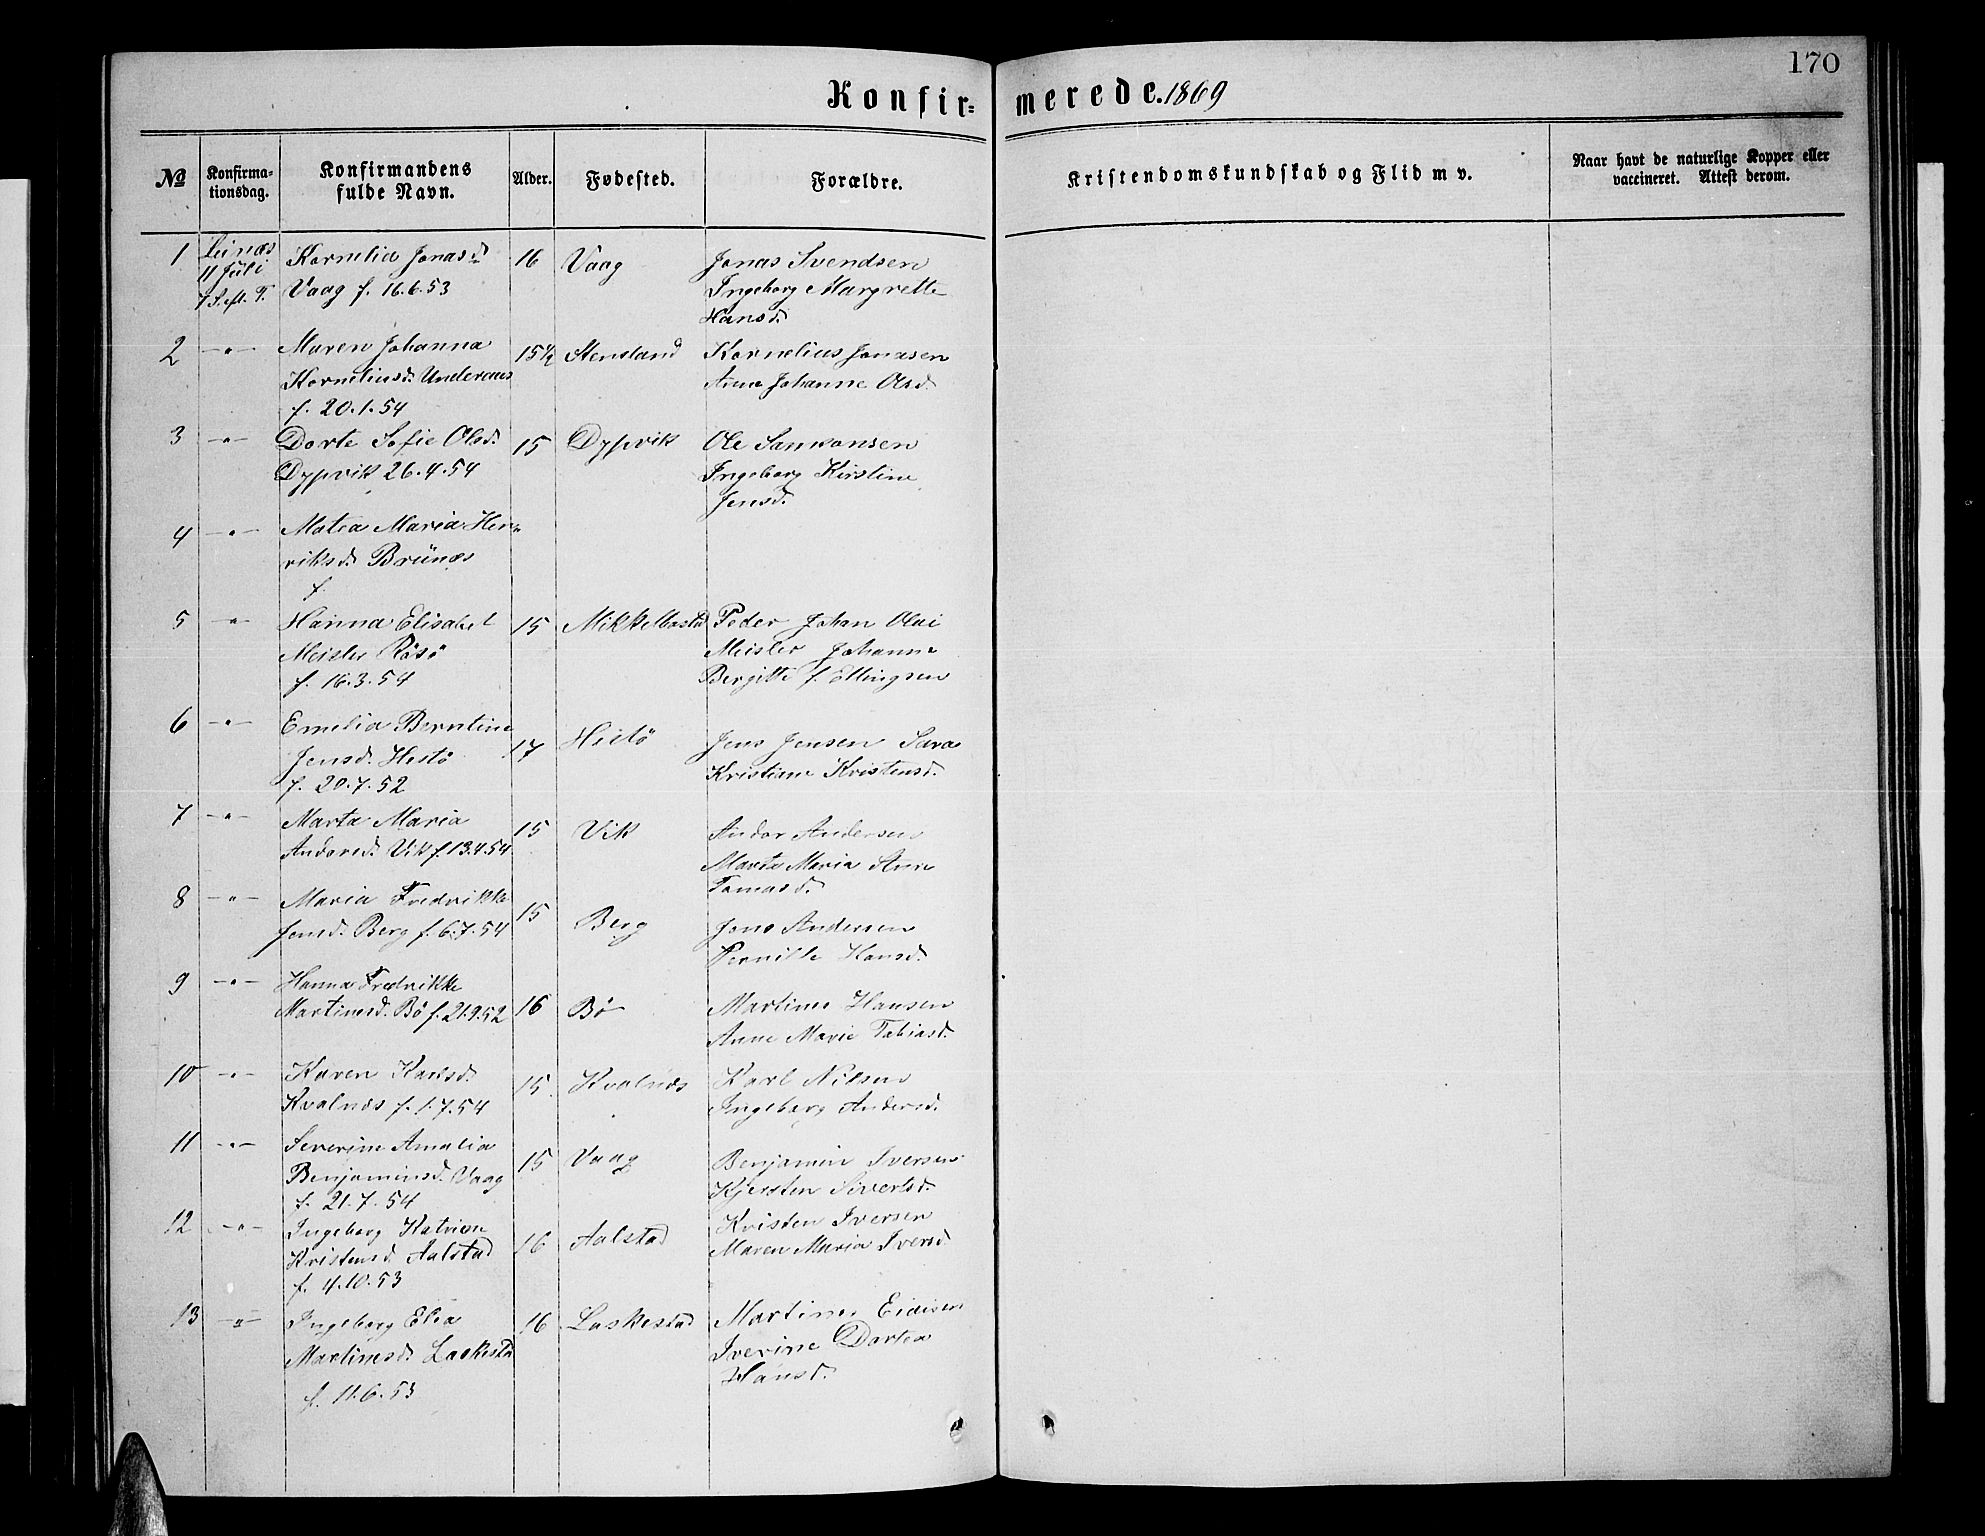 170
Konfir= merede. 1869
No
Konfirma-
tionsdag.
Konfirmandens
fulde Navn.
Alder.
Fødested.
Forældre.
Kristendomskundskab og Flid m v.
Naar havt de naturlige Kopper eller
vaccineret. Attest derom.
1 Leinæs 11 Juli 7 S. eft. T. Kornelia Jonasd 16 Vaag Jonas Svendsen
Vaag f. 16.6.53 Ingeborg Margrette
Hansd.
2 —"— Maren Johanna 15½ Stensland Kornelius Jonasen
Korneliusd. Anne Johanne Olsd.
f. 20.1.54
3 —"— Dorte Sofie Olsd. 15 Dypvik Ole
Dypvik 26.4.54 Ingeborg Kirstine
Jensd.
4 —"— Matea Maria Hen=
riksd. Brünæs
f.
5 " Hanna Elisabet 15 Peder Johan Olai
Meisler Røsø Meisler Johanne
f. 16.3.54 Bergitte f. Ellingsen
6 —"— Emelia Berntine 17 Hestø Jens Jensen Sara
Jensd. Hestø Kristiane Kristensd.
f. 20.7.52
7 —"— Marta Maria 15 Vik Andor Andersen
Andorsd. Vik f. 13.4.54 Marta Maria Ann
Tomasd.
8 —"— Maria Fredrikke 15 Berg Jens Andersen
Jensd. Berg f. 6.7.54 Pernille Hansd.
9 —"— Hanna Fredrikke
Martinusd. Bö f. 21.9.52 16 Bö Martinus Hansen
Anne Marie Tobiasd.
10 —"— Karen Karlsd. 15 Kvalnæs Karl Nilsen
Kvalnæs f. 1.7.54 Ingeborg Andersd.
11 —"— Severine Amalia 15 Vaag Benjamin Iversen
Benjaminsd. Vaag Kjersten Sivertsd.
f. 21.7.54
12 —"— Ingeborg Katrine 16 Aalstad Kristen Iversen
Kristensd. Aalstad Maren Maria Iversd.
f. 4.10.53
13 —"— Ingeborg Elea 16 Laskestad Martinus
Martinusd. Laskestad Iverine Dortea
f. 11.6.53 Hansd.